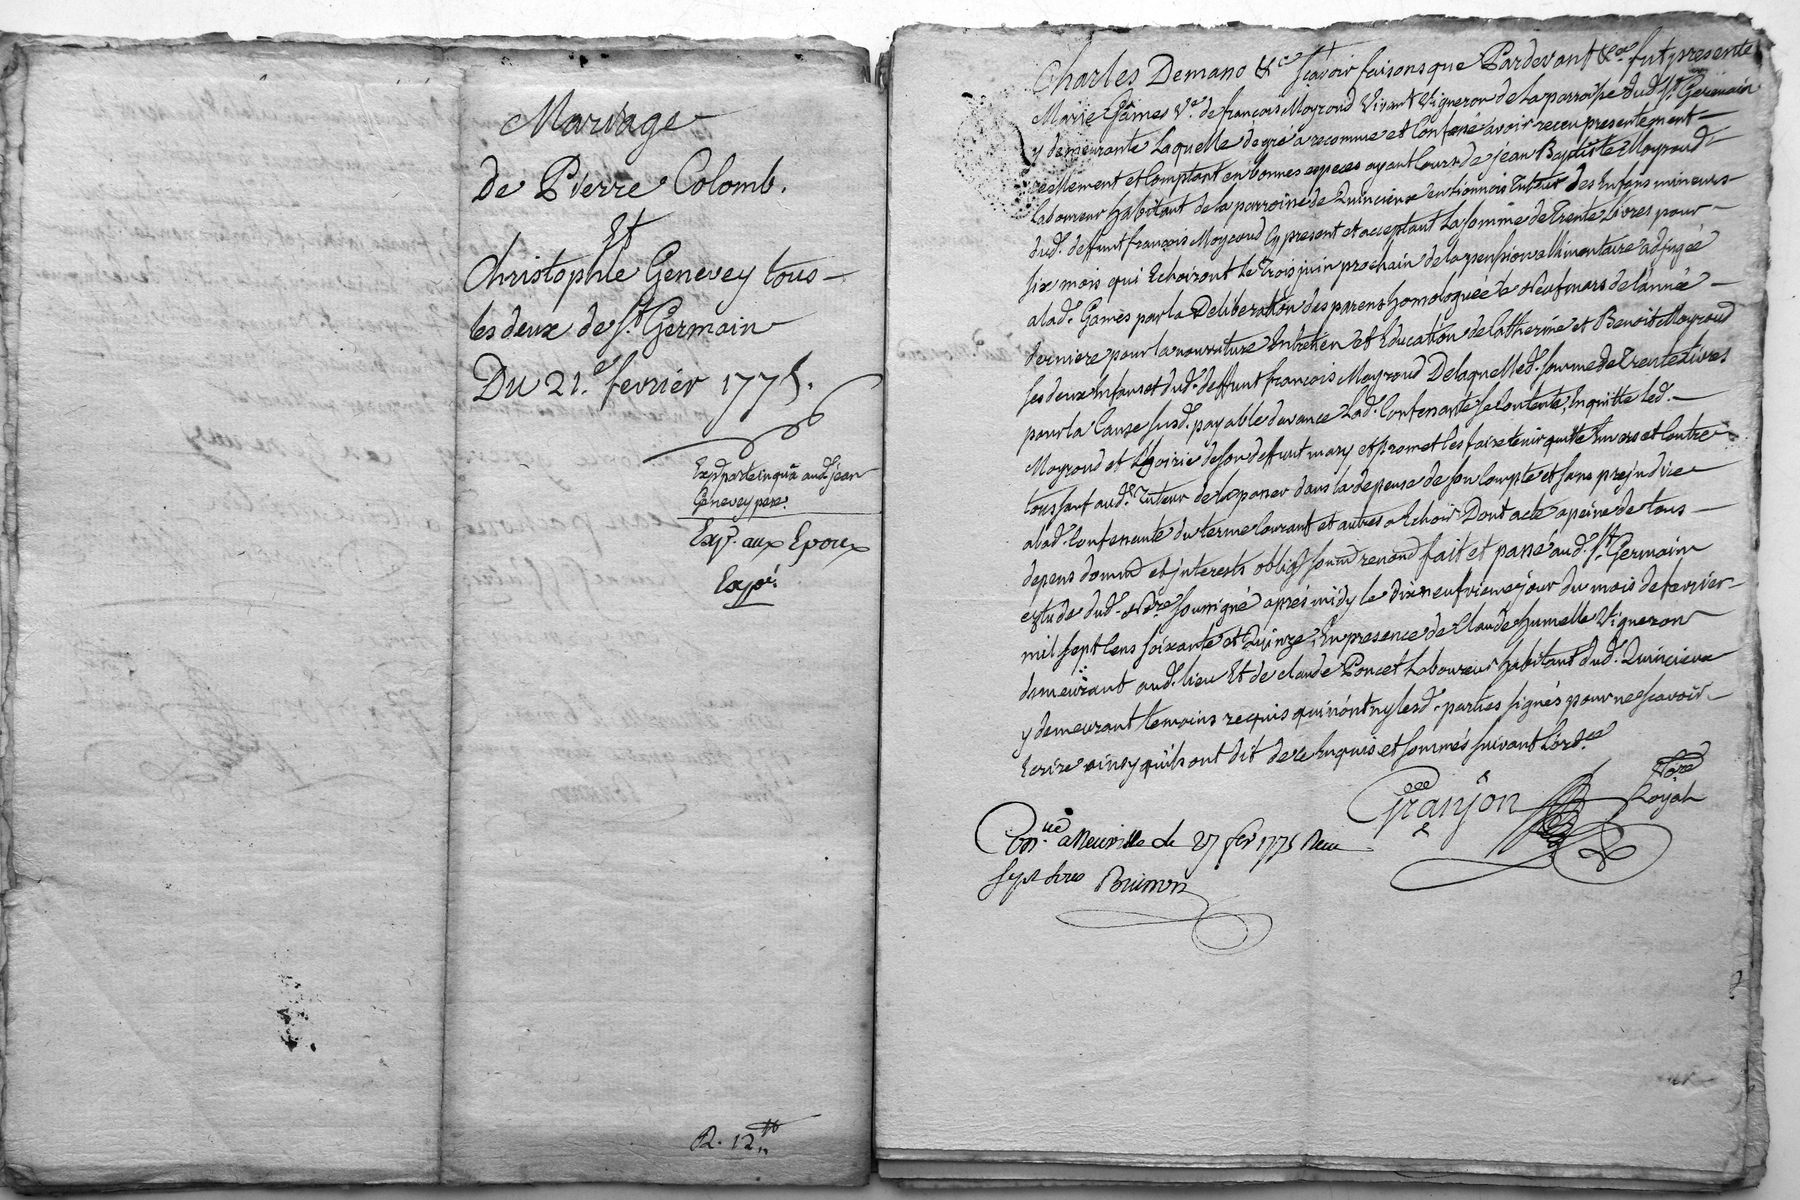 Mariage
de Pierre Colomb.
Et
Christophle Genevey tous
les deux de St. Germain
Du 21.e fevrier 1775.
Genevey pere.
Exp. aux Epoux
Expé.
R. 12tt
Charles Demano &c scavoir faisons que Pardevant &a. fut presente
Marie Gâmes Ve. de francois Moyroud Vivant Vigneron de la parroisse dud. St. Germain
y demeurante Laquelle de gré a reconnue et Confessé avoir receu presentement
reellement et Comptant en bonnes especes ayant Cours de jean Baptiste Moyroud
laboureur habitant de la parroisse de Quincieux en Lionnois Tuteur des Enfans mineurs
dud. deffunt francois Moyroud Cy present et acceptant La somme de Trente Livres pour
six mois qui Echoiront le Trois juin prochain de la pension allimentaire adjugée
a lad. Gamés par la Deliberation des parens homologuée le Neuf mars de l'année
derniere pour la nourriture Entretien et Education de Catherine et Benoit Moyroud
ses deux Enfans et dud. deffunt francois Moyroud De laquelle d. somme de Trente Livres
pour la Cause susd. payable d'avance Lad. Confessante se Contente, En quitte led.
Moyroud et L'hoirie de son deffunt mary et promet les faire tenir quitte Envers et Contre
tous sauf aud. Tuteur de la passer dans la depense de son Compte et sans prejudice
a lad. Confessante du terme Courant et autres a Echoir Dont acte a peine de tous
depens domm. et interests oblig. soum. renond. fait et passé aud. St. Germain
estude dud. Nore. soussigné aprés midy le dix neufvieme jour du mois de fevrier
mil sept Cens soixante et Quinze, En presence de Claude humelle Vigneron
demeurant aud. lieu Et de claude Poncet Laboureur habitant dud. Quincieux
y demeurant temoins requis qui n'ont ny lesd. parties signés pour ne scavoir
Ecrire ainsy qu'ils ont dit de ce Enquis et sommés suivant L'ordce
Granjon Nore Royal
Con.lé a Neuville le 27 fev 1775 Receu
sept sols Brumon